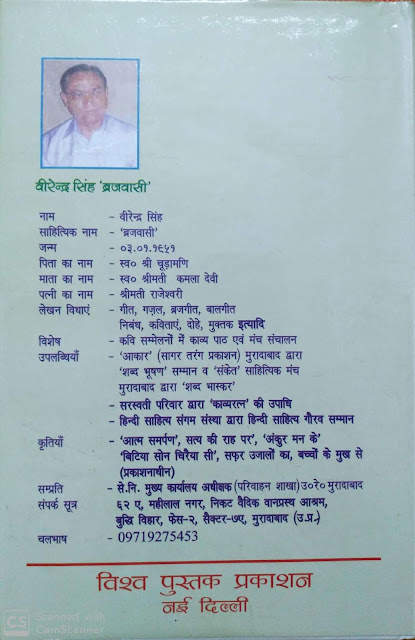 वीरेन्द्र सिंह 'ब्रजवासी'
नाम - वीरेन्द्र सिंह
साहित्यिक नाम - 'ब्रजवासी'
जन्म - ०३.०१.१९५१
पिता का नाम - स्व० श्री चूड़ामणि
माता का नाम - स्व० श्रीमती कमला देवी
पत्नी का नाम - श्रीमती राजेश्वरी
लेखन विधाएं - गीत, गज़ल, ब्रजगीत, बालगीत
निबंध, कविताएं, दोहे, मुक्तक इत्यादि
विशेष - कवि सम्मेलनों में काव्य पाठ एवं मंच संचालन
उपलब्धियाँ - 'आकार' (सागर तरंग प्रकाशन) मुरादाबाद द्वारा
'शब्द भूषण' सम्मान व 'संकेत' साहित्यिक मंच
मुरादाबाद द्वारा 'शब्द भास्कर'
- सरस्वती परिवार द्वारा 'काव्यरत्न' की उपाधि
- हिन्दी साहित्य संगम संस्था द्वारा हिन्दी साहित्य गौरव सम्मान
कृतियाँ - 'आत्म समर्पण', सत्य की राह पर', 'अंकुर मन के'
'बिटिया सोन चिरैया सी', सफ़र उजालों का, बच्चों के मुख से
(प्रकाशनाधीन)
सम्प्रति - से.नि. मुख्य कार्यालय अधीक्षक (परिवाहन शाखा) उ०रे० मुरादाबाद
संपर्क सूत्र ६२ ए, महीलाल नगर, निकट वैदिक वानप्रस्थ आश्रम,
बुद्धि विहार, फेस-२, सैक्टर-७ए, मुरादाबाद (उ.प्र.)
चलभाष - 09719275453
विश्व पुस्तक प्रकाशन
नई दिल्ली
CS Scanned with
CamScanner